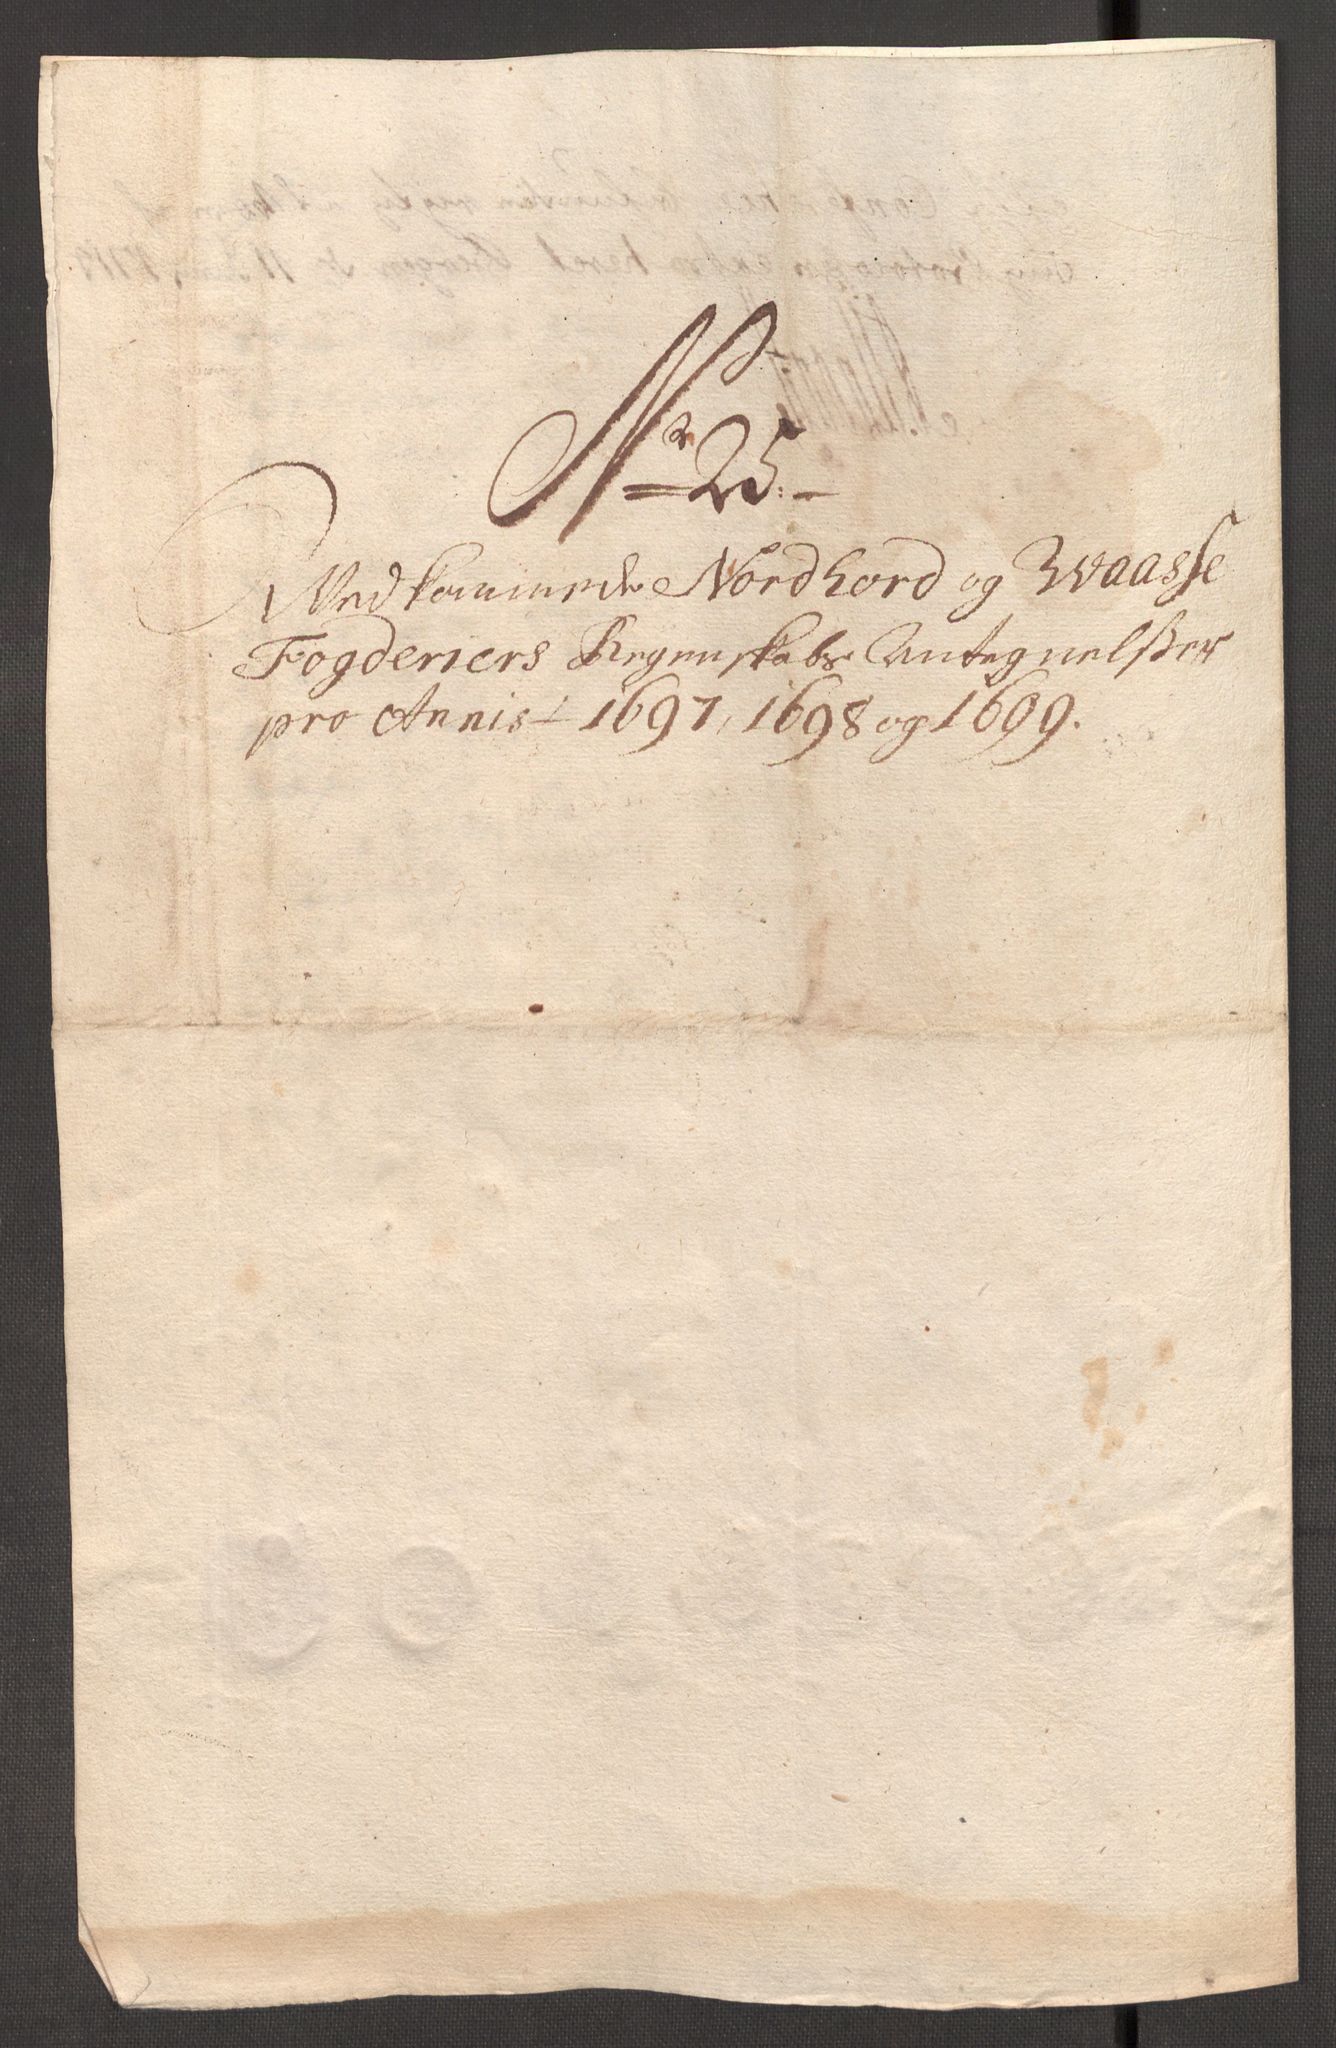 No 25.
Vedkommende Nordhord og Waasse
Fogderiers Regenskabs Antegnelsser
pro Annis 1697, 1698 og 1699.